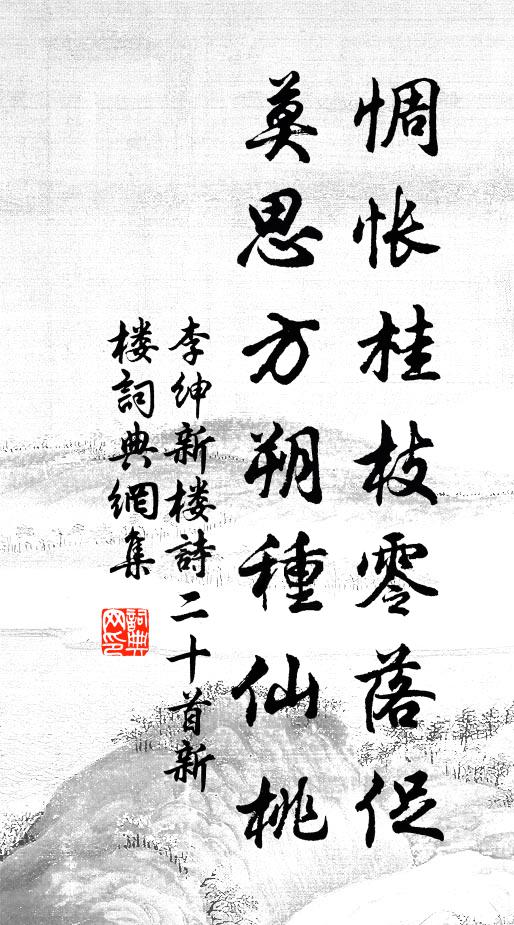 惆怅桂枝零落促
莫思方朔種仙桃
李绅新楼詩二十首新
楼詞典網集
詞典网印